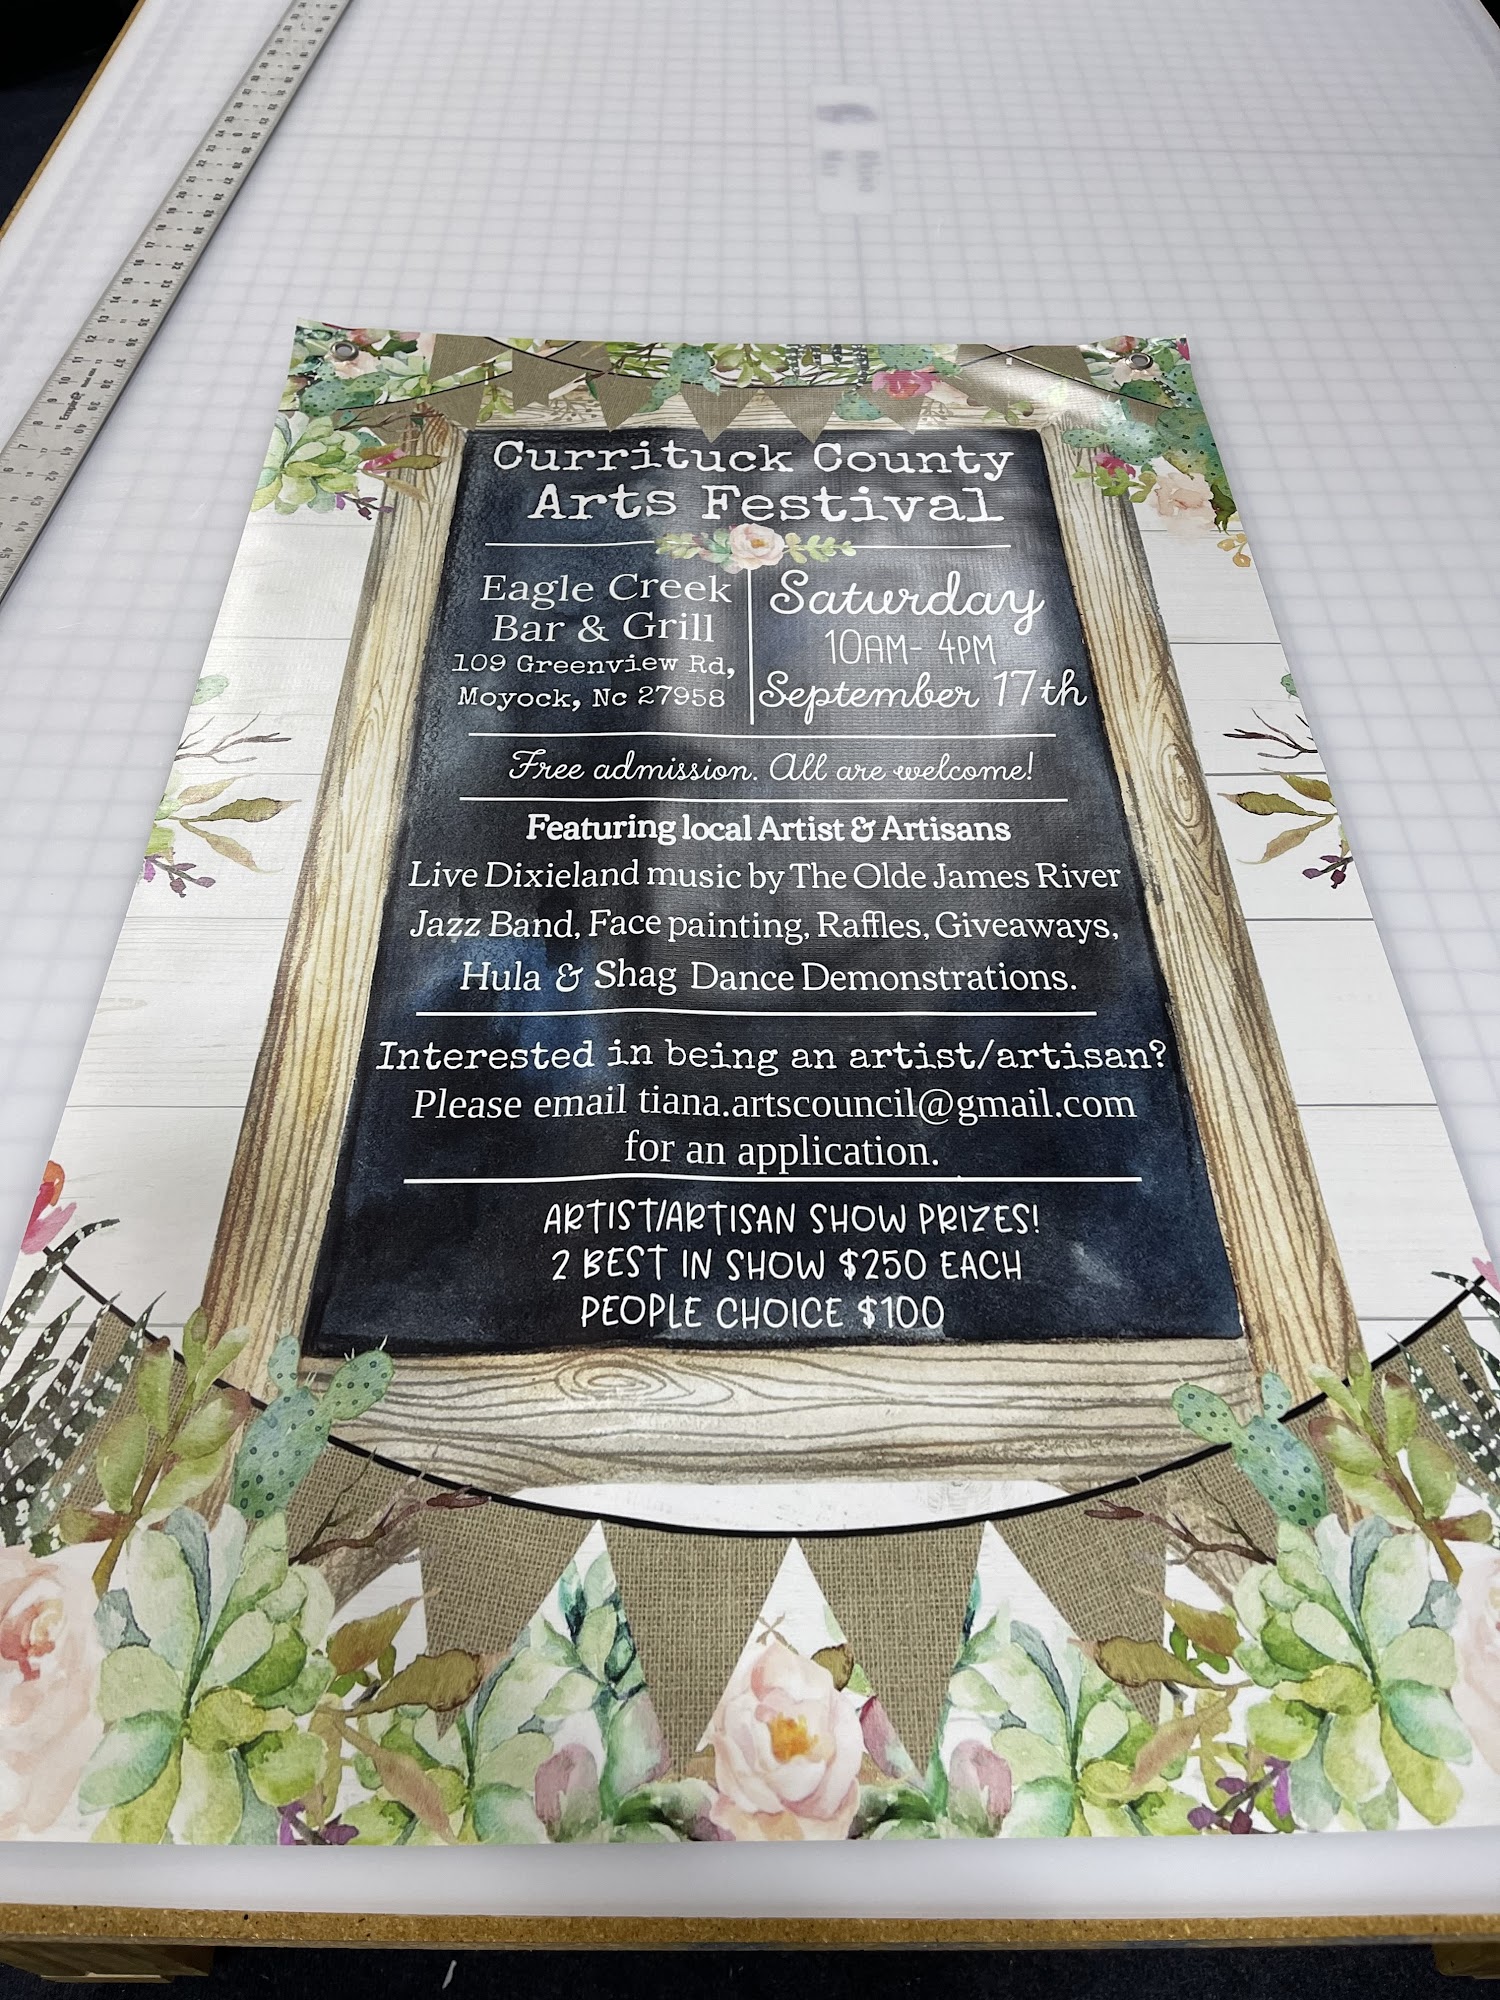 Currituck County
Arts Festival
Eagle Creek
Bar & Grill
109 Greenview Rd,
Moyock, Nc 27958
Saturday
10AM- 4PM
September 17th
Free admission. All are welcome!
Featuring local Artist & Artisans
Live Dixieland music by The Olde James River
Jazz Band, Face painting, Raffles, Giveaways,
Hula & Shag Dance Demonstrations.
Interested in being an artist/artisan?
Please email tiana.artscouncil@gmail.com
for an application.
ARTIST/ARTISAN SHOW PRIZES!
2 BEST IN SHOW $250 EACH
PEOPLE CHOICE $100